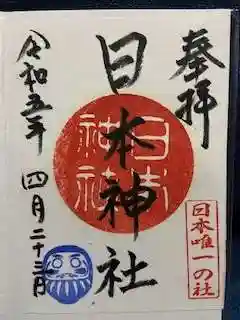 奉拝
日本神社
日本神社
日本唯一の社
令和五年
四月二十三日